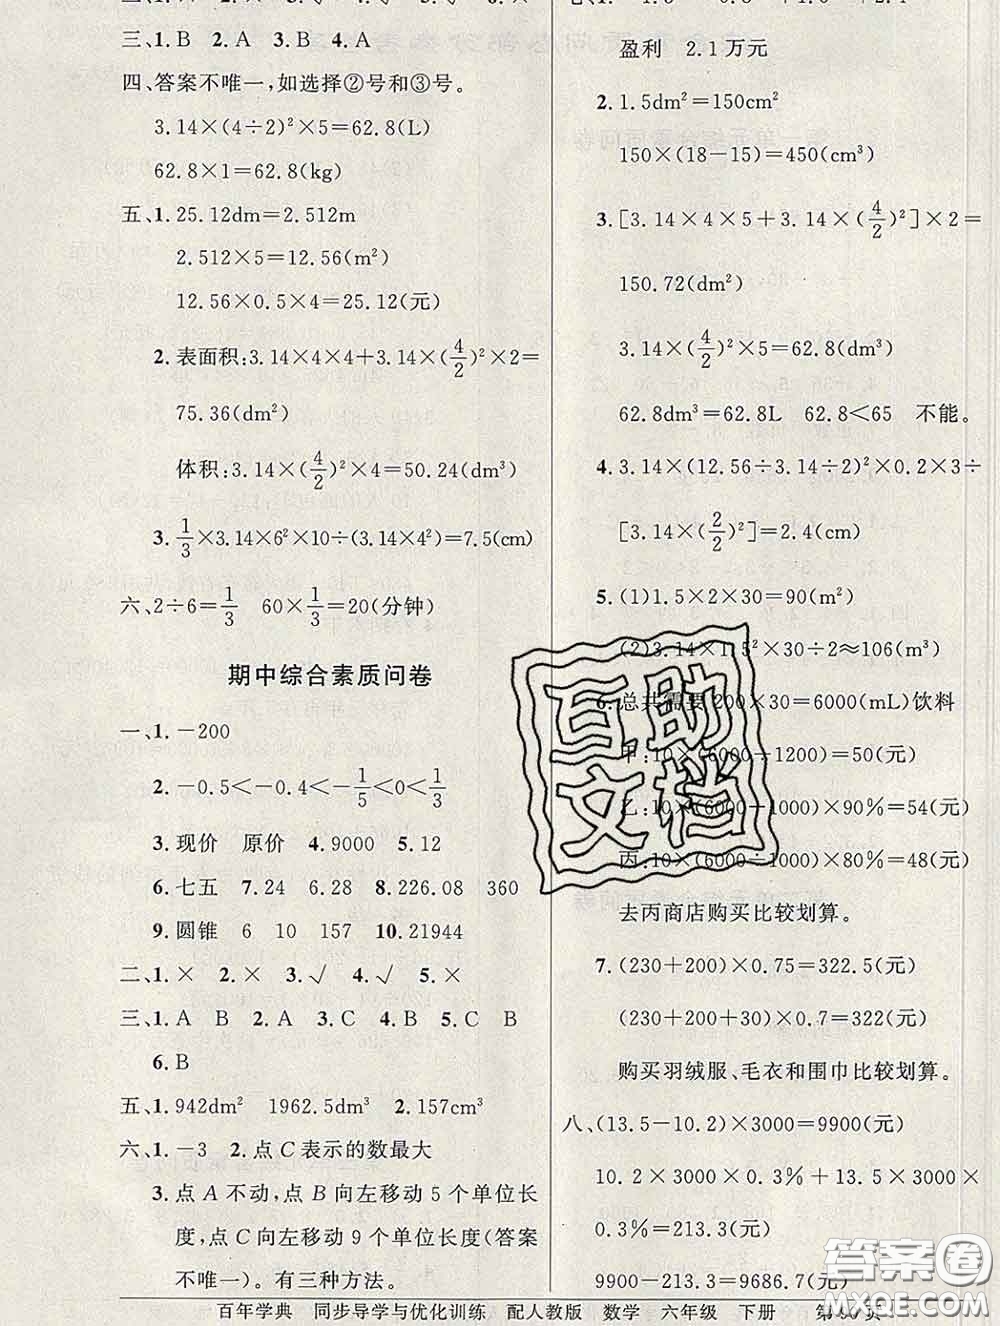 三、1.B 2.A 3.B 4.A
四、答案不唯一,如选择②号和③号。
3.14×(4÷2)²×5=62.8(L)
62.8×1=62.8(kg)
五、1.25.12dm=2.512m
2.512×5=12.56(m²)
12.56×0.5×4=25.12(元)
2.表面积:3.14×4×4+3.14×(4/2)²×2=
75.36(dm²)
体积:3.14×(4/2)²×4=50.24(dm³)
3.1/3×3.14×6²×10÷(3.14×4²)=7.5(cm)
六、2÷6=1/3 60×1/3=20(分钟)
期中综合素质问卷
一、1.-200
2.-0.5<-0.4<-1/5<0<1/3
3.现价 原价 4.9000 5.12
6.七五 7.24 6.28 8.226.08 360
9.圆锥 6 10 157 10.21944
二、1.× 2.× 3.√ 4.√ 5.×
三、1.A B 2.A 3.C 4.B 5.C B
6.B
五、1.942dm² 1962.5dm³ 2.157cm³
六、1.-3 2.点C表示的数最大
3.点A不动,点B向左移动5个单位长
度,点C向左移动9个单位长度(答案
不唯一)。有三种方法。
盈利 2.1万元
2.1.5dm²=150cm²
150×(18-15)=450(cm³)
3.[3.14×4×5+3.14×(4/2)²]×2=
150.72(dm²)
3.14×(4/2)²×5=62.8(dm³)
62.8dm³=62.8L 62.8<65 不能。
4.3.14×(12.56÷3.14÷2)²×0.2×3÷
[3.14×(2/2)²]=2.4(cm)
5.(1)1.5×2×30=90(m²)
(2)3.14×1.5²×30÷2≈106(m³)
6.总共需要200×30=6000(mL)饮料
甲:10×(6000÷1200)=50(元)
乙:10×(6000÷1000)×90%=54(元)
丙:10×(6000÷1000)×80%=48(元)
去丙商店购买比较划算。
7.(230+200)×0.75=322.5(元)
(230+200+30)×0.7=322(元)
购买羽绒服、毛衣和围巾比较划算。
八、(13.5-10.2)×3000=9900(元)
10.2×3000×0.3%+13.5×3000×
0.3%=213.3(元)
9900-213.3=9686.7(元)
百年学典 同步导学与优化训练 配人教版 数学 六年级 下册 第 页
互助文档
答案圈
MXQE.COM